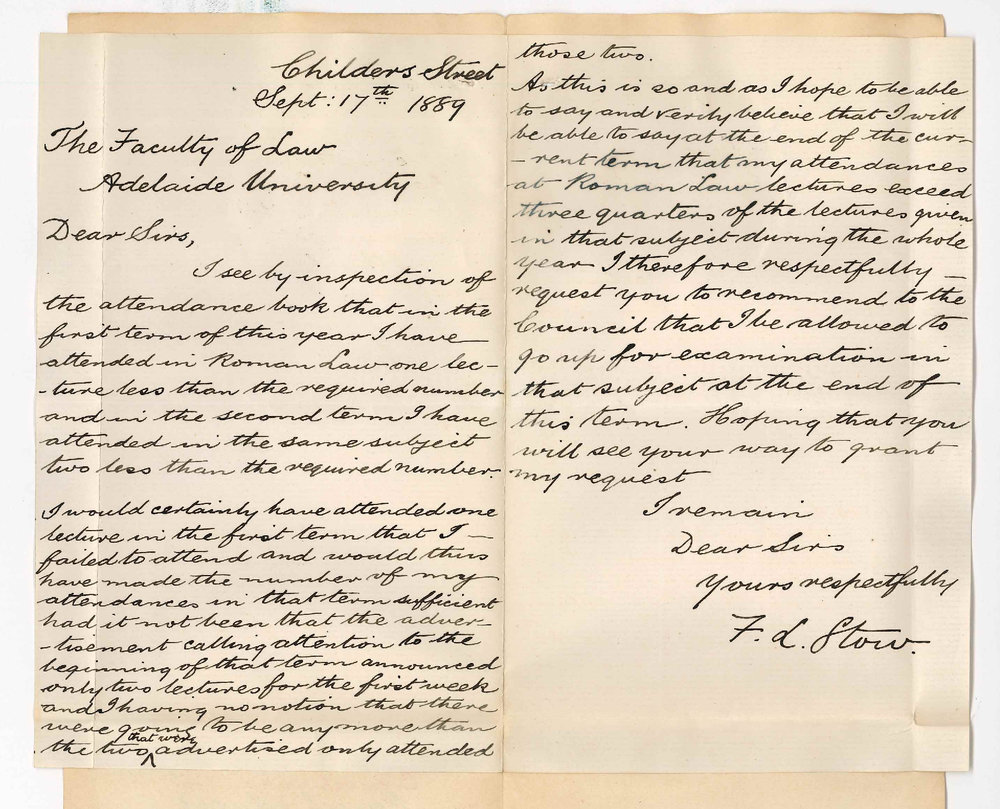 Childers Street
Sept: 17th 1889
The Faculty of Law
Adelaide University
Dear Sirs,
I see by inspection of
the attendance book that in the
first term of this year I have
attended in Roman Law one lec-
-ture less than the required number
and in the second term I have
attended in the same subject
two less than the required number.
I would certainly have attended one
lecture in the first term that I —
failed to attend and would thus
have made the number of my
attendances in that term sufficient
had it not been that the adver-
-tisement calling attention to the
beginning of that term announced
only two lectures for the first week
and I having no notion that there
were going to be any more than
the two that were advertised only attended
those two.
As this is so and as I hope to be able
to say and verily believe that I will
be able to say at the end of the cur-
-rent term that my attendances
at Roman Law lectures exceed
three quarters of the lectures given
in that subject during the whole
year I therefore respectfully —
request you to recommend to the
Council that I be allowed to
go up for examination in
that subject at the end of
this term. Hoping that you
will see your way to grant
my request
I remain
Dear Sirs
Yours respectfully
F. L. Stow.